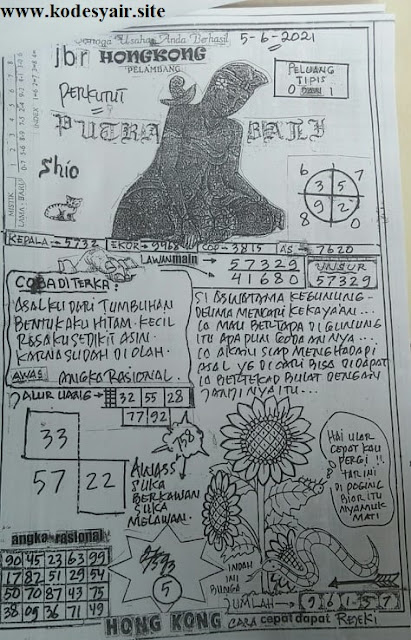 www.kodesyair.site
Semoga Usaha Anda Berhasil
5-6-2021
jbr HONGKONG
PELAMBANG
PERKUTUT
PUTRA BALI
Shio
PELUANG
TIPIS
0 1
6 7
3 5
9 2
8 0
MISTIK
LAMA - BARU
INDEX
KEPALA → 5732 EKOR → 9968 COP → 3815 AS → 7620
LAWAN main
57329
41680
UNSUR
57329
COBA DITERKA:
ASALKU DARI TUMBUHAN
BENTUK AKU HITAM. KECIL
RASAKU SEDIKIT ASIN.
KARNA SUDAH DI OLAH.
AWAS ANGKA RASIONAL.
SI ASWATAMA KEGUNUNG-
DELIMA MENCARI KEKAYAAN...
LO MAU BERTAPA DI GUNUNG
ITU APA PUN GODAANNYA...
LO AKAN SIAP MENGHADAPI
ASAL YG DI CARI BISA DI DAPAT
LO BERTEKAD BULAT DENGAN
JANJINYA ITU...
JALUR UANG → 32 55 28
77 92
33
57 22
758
AWASS
SUKA
BERKAWAN
SUKA
MELAWAN.
HAI ULAR
CEPAT KAU
PERGI !!
HARI INI
DI POGING
BIOR ITU
NYAMUK
MATI
angka rasional
90 45 23 63 99
17 82 51 29 54
50 70 87 43 75
38 09 36 71 49
5
INDAH
INI
BUNGA
JUMLAH → 9 6 1 5 7
HONG KONG CARA cepat dapat REJEKI